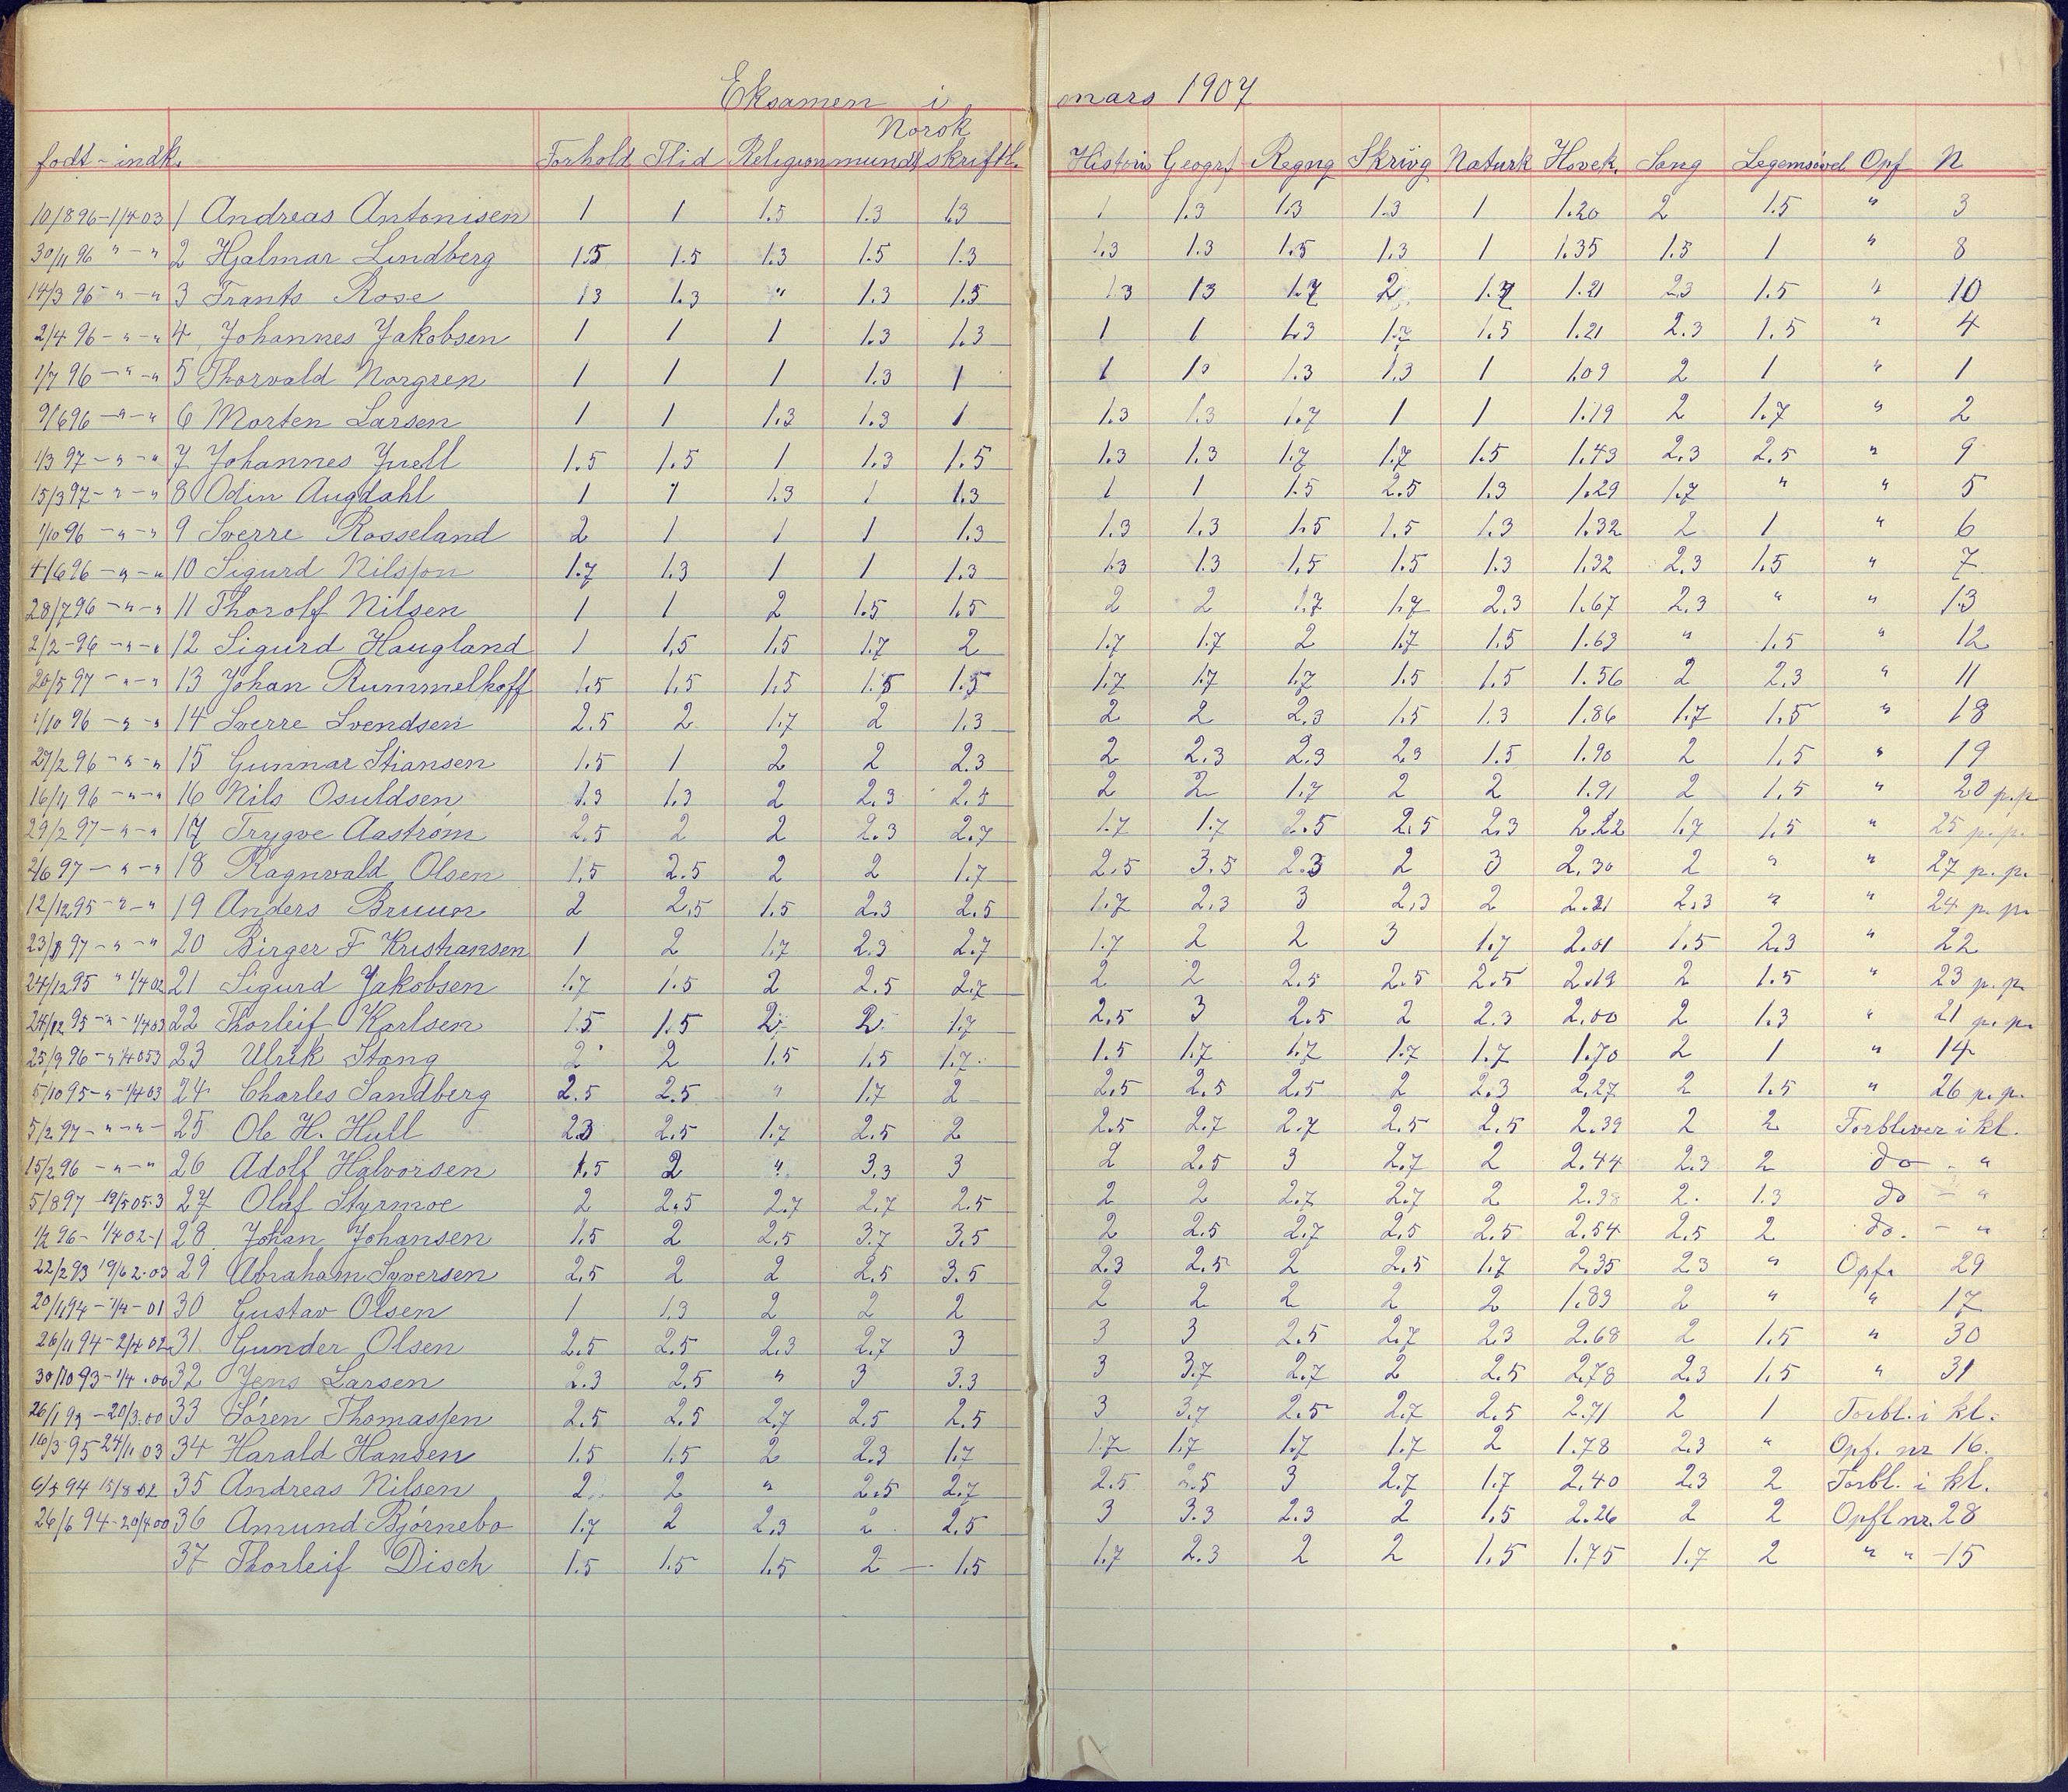 Eksamen i mars 1907
Norsk
født - indk. Forhold Flid Religion mundtl skriftl. Historie Geogrf Regng Skrivg Naturk Hovek. Sang Legemsøvel Opf N
10/8 96 - 1/4 03 1 Andreas Antonisen 1 1 1.5 1.3 1.3 1 1.3 1.3 1.3 1 1.20 2 1.5 " 3
30/11 96 " - " 2 Hjalmar Lindberg 1.5 1.5 1.3 1.5 1.3 1.3 1.3 1.5 1.3 1 1.35 1.5 1 " 8
14/3 96 - " - " 3 Frants Rose 1.3 1.3 " 1.3 1.5 1.3 1.3 1.7 2 1.7 1.21 2.3 1.5 " 10
2/4 96 - " - " 4 Johannes Jakobsen 1 1 1 1.3 1.3 1 1 1.3 1.7 1.5 1.21 2.3 1.5 " 4
1/7 96 - " - " 5 Thorvald Norgren 1 1 1 1.3 1 1 1.3 1.3 1.3 1 1.09 2 1 " 1
9/6 96 - " - " 6 Morten Larsen 1 1 1.3 1.3 1 1.3 1.3 1.7 1 1 1.19 2 1.7 " 2
1/3 97 - " - " 7 Johannes Juell 1.5 1.5 1 1.3 1.5 1.3 1.3 1.7 1.7 1.5 1.43 2.3 2.5 " 9
15/3 97 - " - " 8 Odin Augdahl 1 1 1.3 1 1.3 1 1 1.5 2.5 1.3 1.29 1.7 " " 5
1/10 96 - " - " 9 Sverre Rosseland 2 1 1 1 1.3 1.3 1.3 1.5 1.5 1.3 1.32 2 1 " 6
4/6 96 - " - " 10 Sigurd Nilsson 1.7 1.3 1 1 1.3 1.3 1.3 1.5 1.5 1.3 1.32 2.3 1.5 " 7
28/7 96 - " - " 11 Thorolf Nilsen 1 1 2 1.5 1.5 2 2 1.7 1.7 2.3 1.67 2.3 " " 13
2/2 - 96 - " - " 12 Sigurd Haugland 1 1.5 1.5 1.7 2 1.7 1.7 2 1.7 1.5 1.63 " 1.5 " 12
20/5 97 - " - " 13 Johan Rummelhoff 1.5 1.5 1.5 1.5 1.5 1.7 1.7 1.7 1.5 1.5 1.56 2 2.3 " 11
1/10 96 - " - " 14 Sverre Svendsen 2.5 2 1.7 2 1.3 2 2 2.3 1.5 1.3 1.86 1.7 1.5 " 18
27/2 96 - " - " 15 Gunnar Stiansen 1.5 1 2 2 2.3 2 2.3 2.3 2.3 1.5 1.90 2 1.5 " 19
16/11 96 - " - " 16 Nils Osuldsen 1.3 1.3 2 2.3 2.3 2 2 1.7 2 2 1.91 2 1.5 " 20 p.p.
29/2 97 - " - " 17 Trygve Aastrøm 2.5 2 2 2.3 2.7 1.7 1.7 2.5 2.5 2.3 2.22 1.7 1.5 " 25 p.p.
2/6 97 - " - " 18 Ragnvald Olsen 1.5 2.5 2 2 1.7 2.5 3.5 2.3 2 3 2.30 2 " " 27 p.p.
12/12 95 - " - " 19 Anders Bruun 2 2.5 1.5 2.3 2.5 1.7 2.3 3 2.3 2 2.21 2.3 " " 24 p.p.
23/8 97 - " - " 20 Birger F Kristiansen 1 2 1.7 2.3 2.7 1.7 2 2 3 1.7 2.01 1.5 2.3 " 22
24/12 95 " 1/4 02 21 Sigurd Jakobsen 1.7 1.5 2 2.5 2.7 2 2 2.5 2.5 2.5 2.19 2 1.5 " 23 p.p.
24/12 95 - " - 1/4 03 22 Thorleif Karlsen 1.5 1.5 2 2 1.7 2.5 3 2.5 2 2.3 2.00 2 1.3 " 21 p.p.
25/9 96 - " 1/4 05 3 23 Ulrik Stang 2 2 1.5 1.5 1.7 1.5 1.7 1.7 1.7 1.7 1.70 2 1 " 14
5/10 95 - " - 1/4 03 24 Charles Sandberg 2.5 2.5 " 1.7 2 2.5 2.5 2.5 2 2.3 2.27 2 1.5 " 26 p.p.
5/2 97 - " - " - 25 Ole H. Hull 2.3 2.5 1.7 2.5 2 2.5 2.7 2.7 2.5 2.5 2.39 2 2 Forbliver i kl.
15/2 96 - " - " 26 Adolf Halvorsen 1.5 2 " 3.3 3 2 2.5 3 2.7 2 2.44 2.3 2 do - "
5/8 97 - 19/5 05.3 27 Olaf Styrmoe 2 2.5 2.7 2.7 2.5 2 2 2.7 2.7 2 2.38 2. 1.3 do - "
1/2 96 - 1/4 02 - 1 28 Johan Johansen 1.5 2 2.5 3.7 3.5 2 2.5 2.7 2.5 2.5 2.54 2.5 2 do. - "
22/2 93 19/6 2.03 29 Abraham Syversen 2.5 2 2 2.5 3.5 2.3 2.5 2 2.5 1.7 2.35 2.3 " Opf. 29
20/1 94 - 1/4 - 01 30 Gustav Olsen 1 1.3 2 2 2 2 2 2 2 2 1.83 2 " " 17
26/11 94 - 2/4 02 31 Gunder Olsen 2.5 2.5 2.3 2.7 3 3 3 2.5 2.7 2.3 2.68 2 1.5 " 30
30/10 93 - 1/4 .00 32 Jens Larsen 2.3 2.5 " 3 3.3 3 3.7 2.7 2 2.5 2.78 2.3 1.5 " 31
26/1 93 - 20/3.00 33 Søren Thomassen 2.5 2.5 2.7 2.5 2.5 3 3.7 2.5 2.7 2.5 2.71 2 1 Forbl. i kl.
16/3 95 24/1 03 34 Harald Hansen 1.5 1.5 2 2.3 1.7 1.7 1.7 1.7 1.7 2 1.78 2.3 " Opf. nr 16.
6/5 94 15/8 02 35 Andreas Nilsen 2 2 " 2.5 2.7 2.5 2.5 3 2.7 1.7 2.40 2.3 2 Forbl. i kl.
26/6 94 - 20/4 00 36 Amund Bjørnebo 1.7 2 2.3 2 2.5 3 3.3 2.3 2 1.5 2.26 2 2 Opfl nr. 28
37 Thorleif Disch 1.5 1.5 1.5 2 - 1.5 1.7 2.3 2 2 1.5 1.75 1.7 2 " " - 15